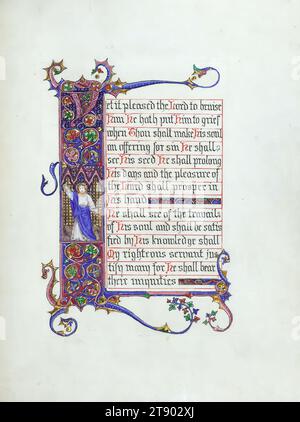 Yet it pleased the Lord to bruise
Him He hath put Him to grief
when Thou shall make His soul
an offering for sin He shall
see His seed He shall prolong
His days and the pleasure of
the Lord shall prosper in
his hand
He shall see of the travail
of His soul and shall be satis
fied by His knowledge shall
My righteous servant jus
tify many for He shall bear
their iniquities
alamy
Image ID: 2T902XJ
www.alamy.com